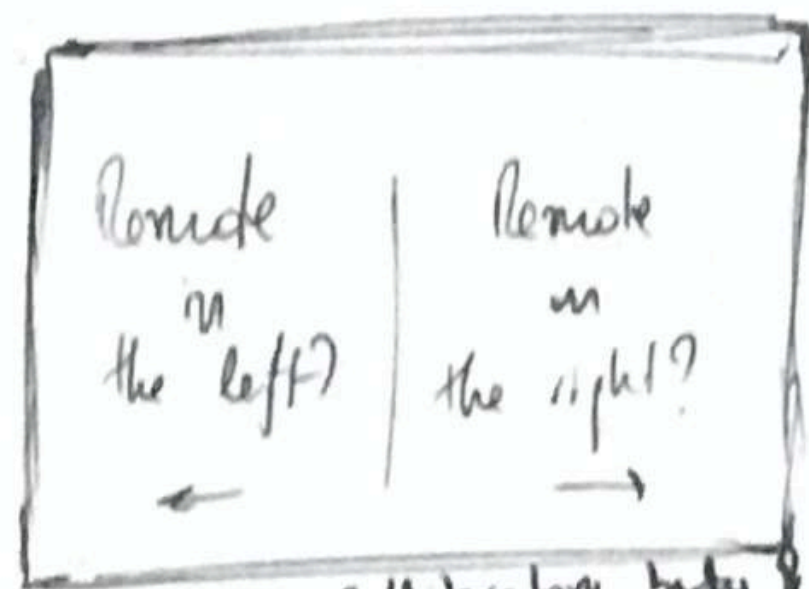 Remote
in
the left?
Remote
in
the right?